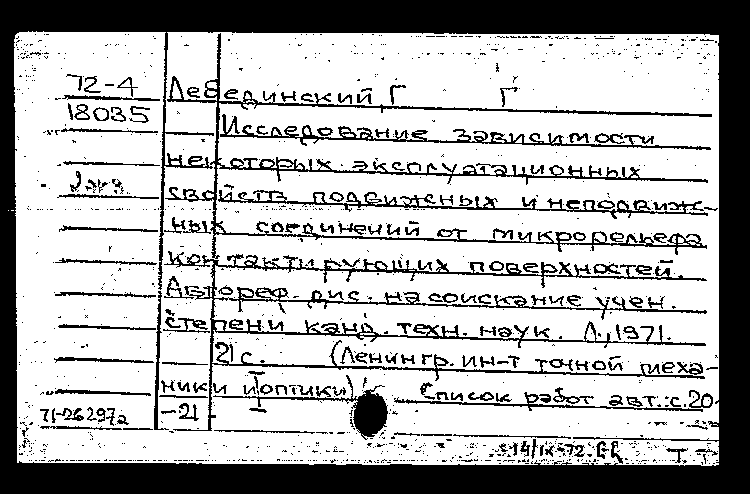 72-4 Лебединский, Г Г
18035
Исследование зависимости
некоторых эксплуатационных
2 экз свойств подвижных и неподвиж-
ных соединений от микрорельефа
контактирующих поверхностей.
Автореф. дис. на соискание учен.
степени канд. техн. наук. Л., 1971.
21 с. (Ленингр. ин-т точной меха-
ники и оптики) Список работ авт.: с. 20-
71-26297а -21
14/IX-72.